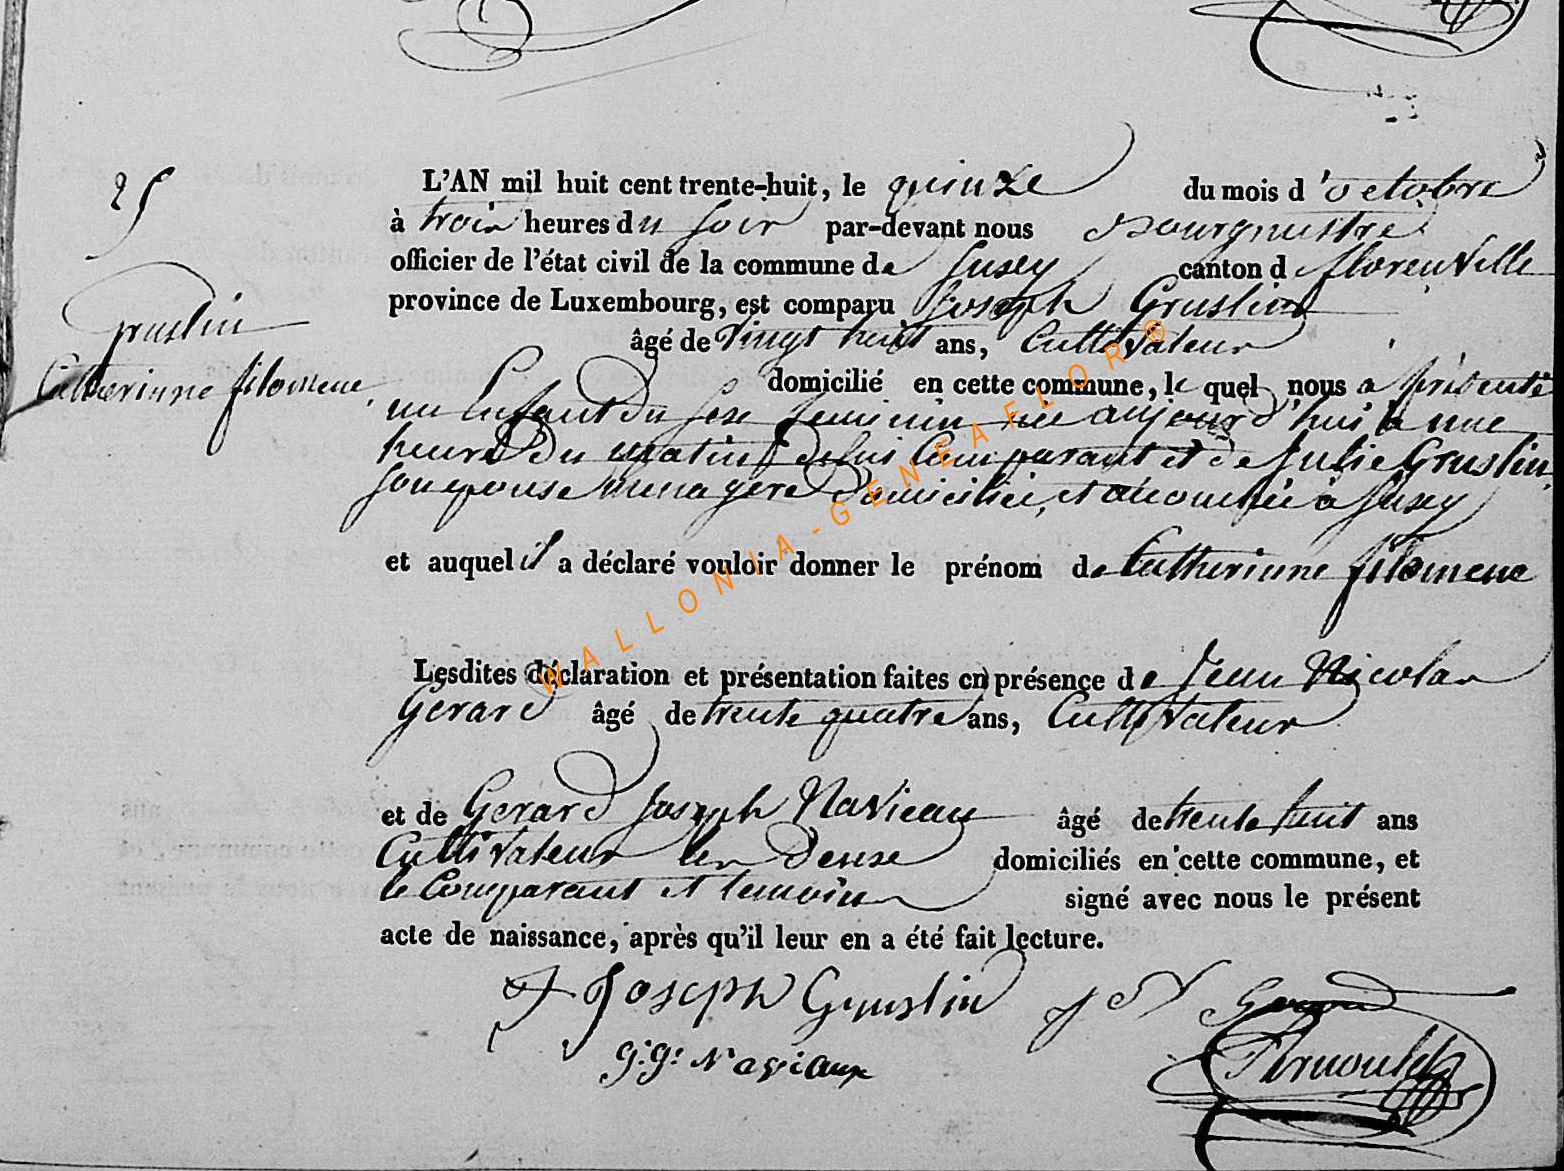 25
Gruslin
Catherinne filomene
L'AN mil huit cent trente-huit, le quinze du mois d'octobre
à trois heures du soir par-devant nous Bourgmestre
officier de l'état civil de la commune de Jusey canton d florenville
province de Luxembourg, est comparu Joseph Gruslin
âgé de Vingt huit ans, Cultivateur
domicilié en cette commune, le quel nous a présenté
un Enfant du sexe feminin née aujourd'hui à une
heure du matin de lui Comparant et de Julie Gruslin,
son epouse menagere domiciliée, et accouchée à Jusey
et auquel il a déclaré vouloir donner le prénom de Catherinne filomene
Lesdites déclaration et présentation faites en présence de Jean Nicolas
Gerard âgé de trente quatre ans, Cultivateur
et de Gerard Joseph Navieau âgé de trente huit ans
Cultivateur les Deux domiciliés en cette commune, et
le Comparant et temoins signé avec nous le présent
acte de naissance, après qu'il leur en a été fait lecture.
Joseph Gruslin
J N Gerard
g:g: Naviaux
Arnould
WALLONIA-GENEAFLOR®